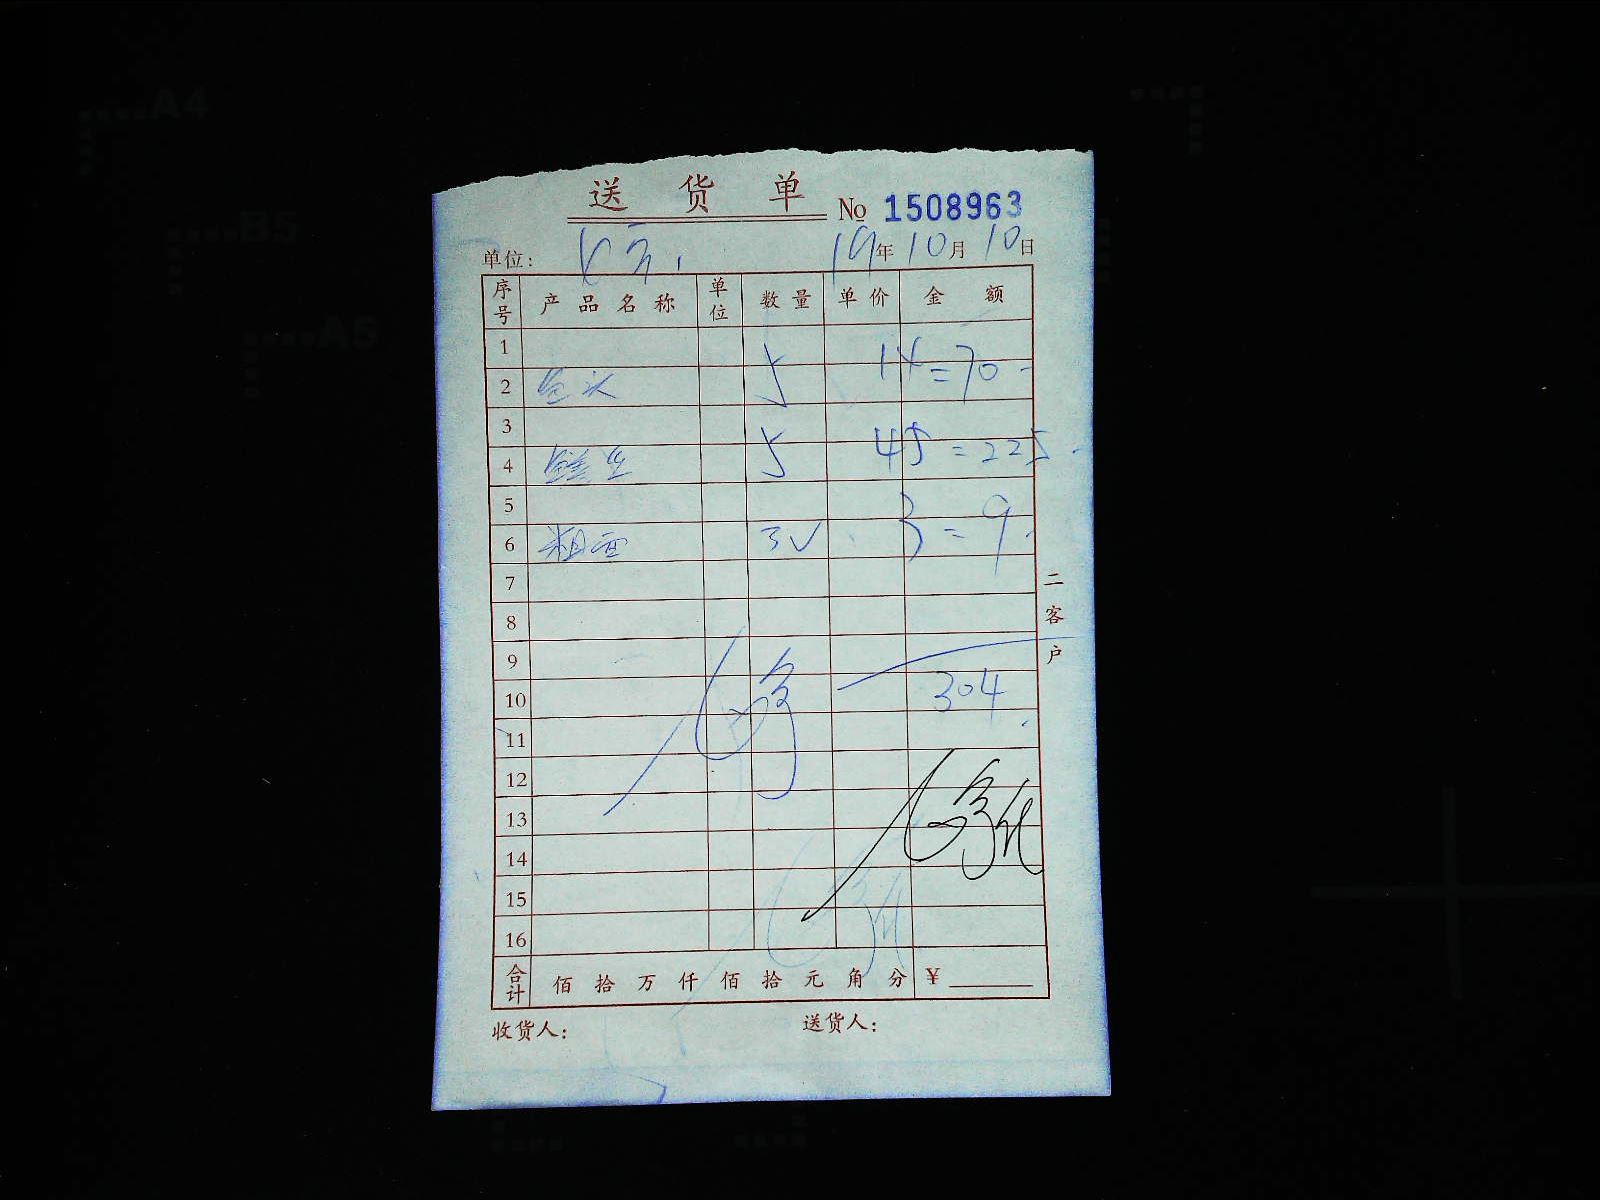 送 货 单 No 1508963
单位: 19年10月10日
序号 产品名称 单位 数量 单价 金额
1
2 包头 5 14=70-
3
4 5 45=225.
5
6 粗面 3 3=9.
7
8
9
10 304.
11
12
13
14
15
16
合计 佰 拾 万 仟 佰 拾 元 角 分 ¥
收货人: 送货人:
二客户
A4
B5
A5